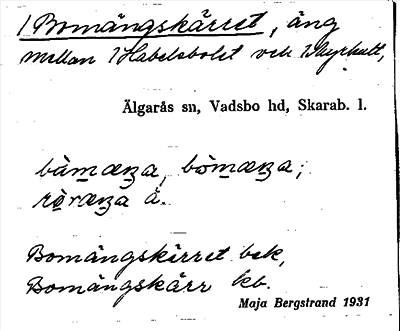 1 Bomängskärret, äng
mellan 1 Habelsbolet och 1
Älgarås sn, Vadsbo hd, Skarab. l.
bàmæŋa, bòmæŋa;
å.
Bomängskärret bek,
Bomängskärr kb.
Maja Bergstrand 1931